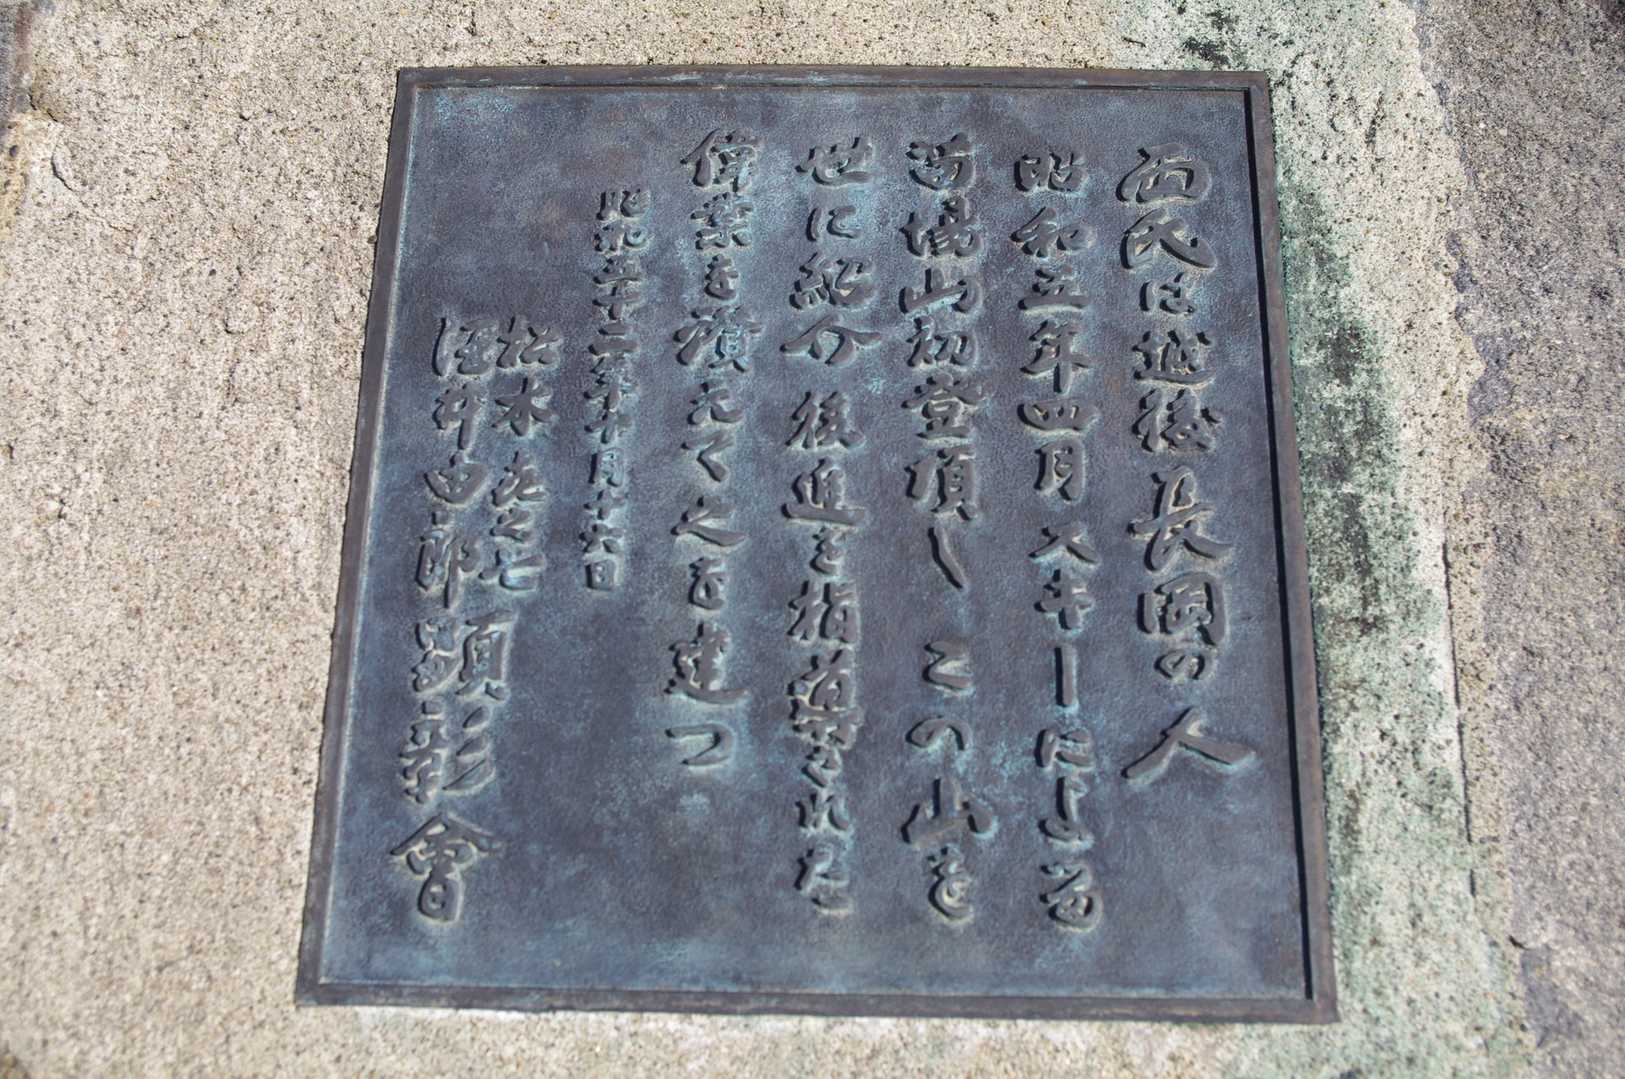 両氏は越後長岡の人
昭和五年四月スキーによる
苗場山初登頂しこの山を
世に紹介後進を指導された
偉業を讃えて之を建つ
昭和五十二年十月十六日
松木喜之七
酒井由郎
顕彰會